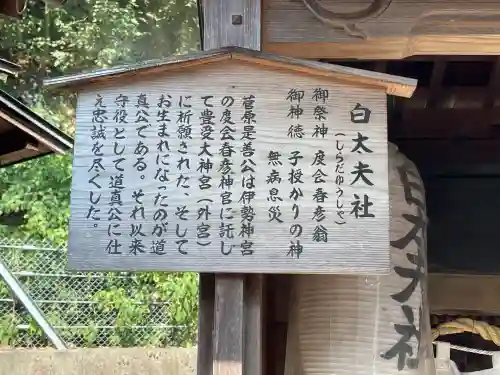 白太夫社
（しらだゆうしゃ）
御祭神 度会春彦翁
御神徳 子授かりの神
無病息災
菅原是善公は伊勢神宮
の度会春彦神官に託し
て豊受大神宮（外宮）
に祈願された、そして
お生まれになったのが道
真公である。それ以来
守役として道真公に仕
え忠誠を尽くした。
白太夫社